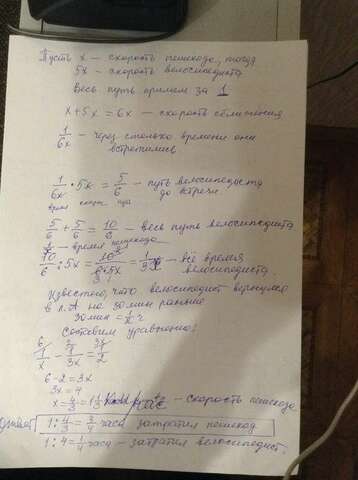 Пусть x — скорость пешехода, тогда
5x — скорость велосипедиста
Весь путь примем за 1
x + 5x = 6x — скорость сближения
1/6x — через столько времени они
встретились
1/6x · 5x = 5/6 — путь велосипедиста
время скорость до встречи
5/6 + 5/6 = 10/6 — весь путь велосипедиста
1/x — время пешехода
10/6 : 5x = 10/6·5x = 1/3x — всё время
велосипедиста.
Известно, что велосипедист вернулся
в п. А на 30 мин раньше
30 мин = 1/2 ч
Составим уравнение:
1/x - 1/3x = 1/2
6 - 2 = 3x
3x = 4
x = 4/3 = 1 1/3 — скорость пешехода
Ответ 1 : 4/3 = 3/4 часа затратил пешеход
1 : 4 = 1/4 часа — затратил велосипедист.